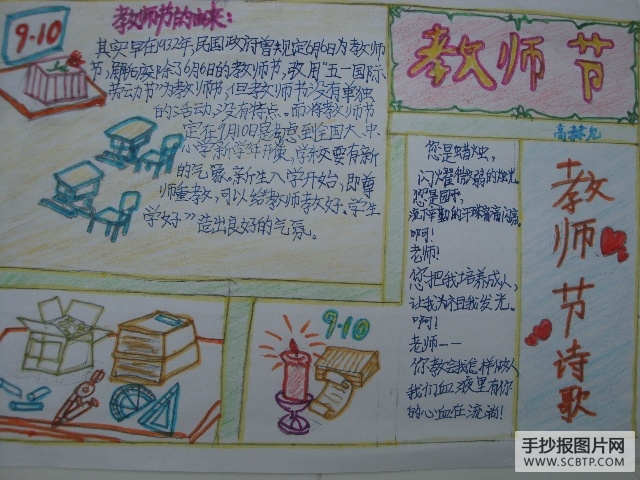 9·10
教师节的由来：
其实早在1932年，民国政府曾规定6月6日为教师
节，解放后废除了6月6日的教师节，改用“五一国际
劳动节”为教师节，但教师节没有单独
的活动，没有特点。而将教师节
定在9月10日是考虑到全国大、中
小学新学年开始，学校要有新
的气氛。新生入学开始，即尊
师重教，可以给教师教好、学生
学好”造出良好的气氛。
教师节
您是蜡烛，
闪烁着微弱的烛光。
您是园丁，
啊！
老师！
您把我培养成人，
让我为祖国发光。
啊！
老师——
你教会我怎样做人
我们血液里有你
的心血在流淌！
教师节诗歌
9·10
手抄报图片网
WWW.SCBTP.COM